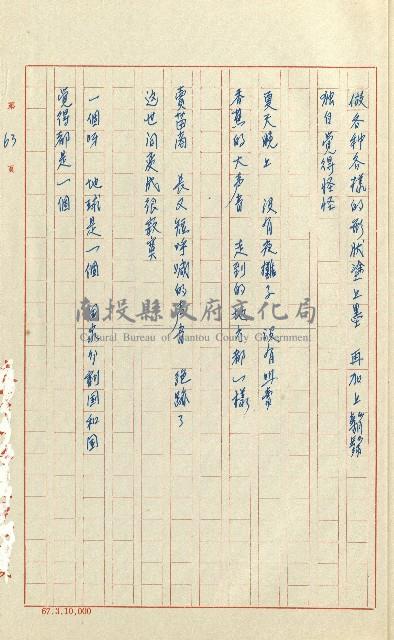 做各种各樣的形狀塗上墨　再加上鬍鬚
独自覺得怪怪
夏天晚上　沒有夜攤子　沒有叫賣
香蕉的大声音　走到的地方都一樣
賣苗商　長又短呼喊的声音　絕跡了
这世间变成很寂寞
一個呀　地球是一個　国家分割国和国
覺得都是一個
第 63 頁
南投縣政府文化局
Cultural Bureau of Nantou County Government
67.3.10,000